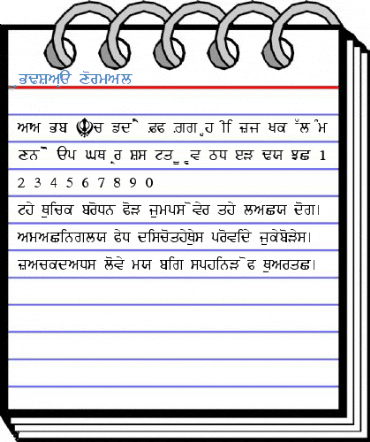 ਭਢਸ਼ਅੳ ਣੋਰਮਅਲ
ਅਅ ਭਬ ☬ਚ ਡਦੌ ਫ਼ਫ ਗ਼ਗ ੍ਹ ੀਿ ਜ਼ਜ ਖਕ ੱਲ ੰਮ
ਣਨ ੌ ੳਪ ਘਥ ੍ਰਰ ਸ਼ਸ ਟਤ ੂੁ ੍ਵਵ ਠਧ ਏੜ ਢਯ ਝਛ 1
2 3 4 5 6 7 8 9 0
ਟਹੇ ਥੁਚਿਕ ਬਰੋਧਨ ਫੋੜ ਜੁਮਪਸ ੋਵੇਰ ਤਹੇ ਲਅਛਯ ਦੋਗ।
ਅਮਅਛਨਿਗਲਯ ਫੇਧ ਦਸਿਚੋਤਹੇਥੁੇਸ ਪਰੋਵਦਿੇ ਜੁਕੇਬੋੜੇਸ।
ਜ਼ਅਚਕਦਅਧਸ ਲੋਵੇ ਮਯ ਬਗਿ ਸਪਹਨਿੜ ੋਫ ਥੁਅਰਤਛ।